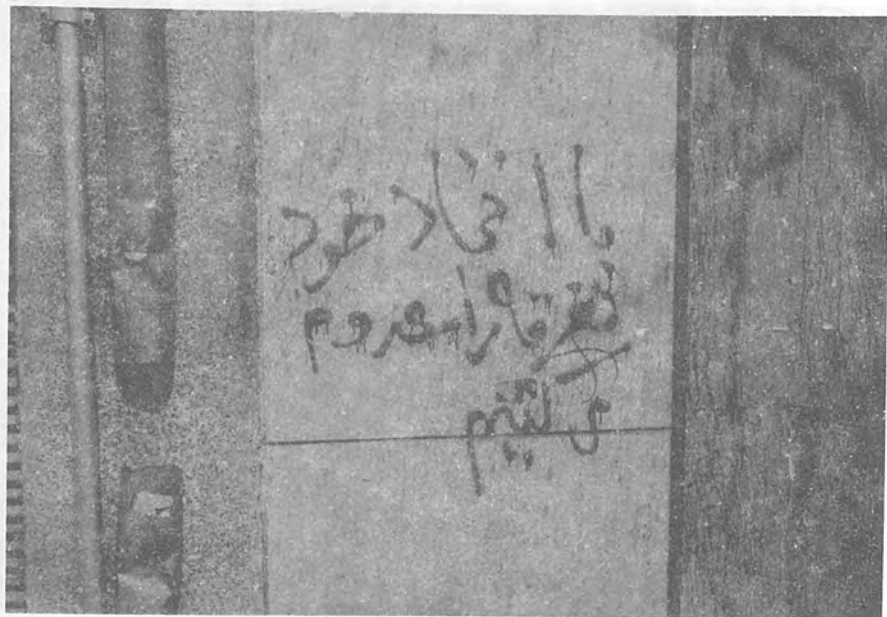 با اتحاد خود
تفرقه را معدوم
می کنیم